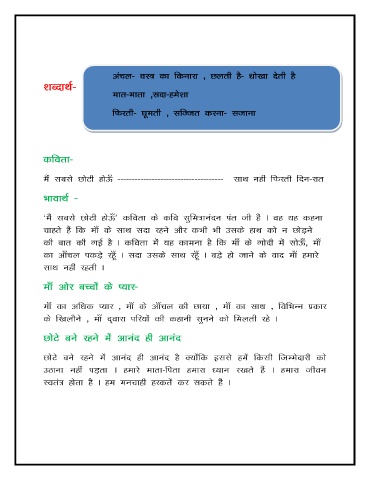 अंचल- वस्त्र का किनारा , छलती है- धोखा देती है
शब्दार्थ-
मात-माता ,सदा-हमेशा
फिरती- घूमती , सज्जित करना- सजाना
कविता-
मैं सबसे छोटी होऊँ ------------------------------------- साथ नहीं फिरती दिन-रात
भावार्थ -
‘मैं सबसे छोटी होऊँ’ कविता के कवि सुमित्रानंदन पंत जी हैं । वह यह कहना
चाहते हैं कि माँ के साथ सदा रहने और कभी भी उसके हाथ को न छोड़ने
की बात की गई है । कविता में यह कामना है कि माँ के गोदी में सोऊँ, माँ
का आँचल पकड़े रहूँ । सदा उसके साथ रहूँ । बड़े हो जाने के वाद माँ हमारे
साथ नहीं रहती ।
माँ ओर बच्चों के प्यार-
माँ का अधिक प्यार , माँ के आँचल की छाया , माँ का साथ , विभिन्न प्रकार
के खिलौने , माँ द्वारा परियों की कहानी सुनने को मिलती रहे ।
छोटे बने रहने में आनंद ही आनंद
छोटे बने रहने में आनंद ही आनंद है क्योंकि इससे हमें किसी जिम्मेदारी को
उठाना नहीं पड़ता । हमारे माता-पिता हमारा ध्यान रखते हैं । हमारा जीवन
स्वतंत्र होता है । हम मनचाही हरकतें कर सकते हैं ।